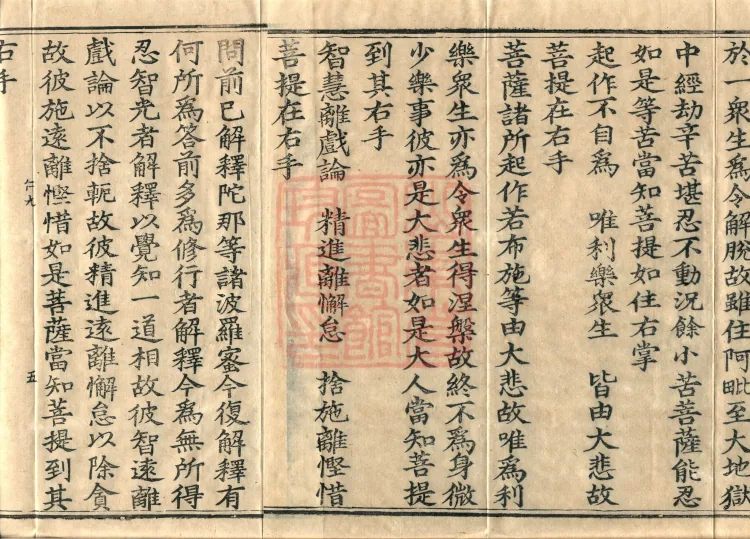 於一衆生爲令解脫故雖住阿毗至大地獄
中經劫辛苦堪忍不動況餘小苦菩薩能忍
如是等苦當知菩提如住右掌
起作不自爲　唯利樂衆生　皆由大悲故
菩提在右手
菩薩諸所起作若布施等由大悲故唯爲利
樂衆生亦爲令衆生得涅槃故終不爲身微
少樂事彼亦是大悲者如是大人當知菩提
到其右手
智慧離戲論　精進離懈怠　捨施離慳惜
菩提在右手
問前已解釋陀那等諸波羅蜜今復解釋有
何所爲答前多爲修行者解釋今爲無所得
忍智光者解釋以覺知一道相故彼智遠離
戲論以不捨軛故彼精進遠離懈怠以除貪
仁九　五
故彼施遠離慳惜如是菩薩當知菩提到其
右手